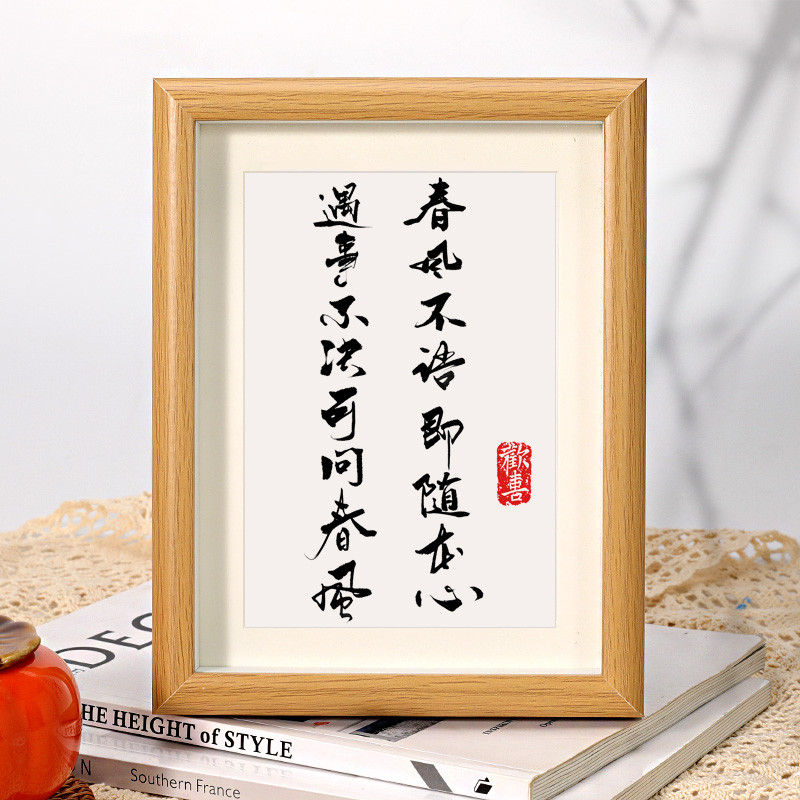 遇事不决可问春風
春风不语即随本心
歡喜
DEC
HE HEIGHT of STYLE
N Southern France